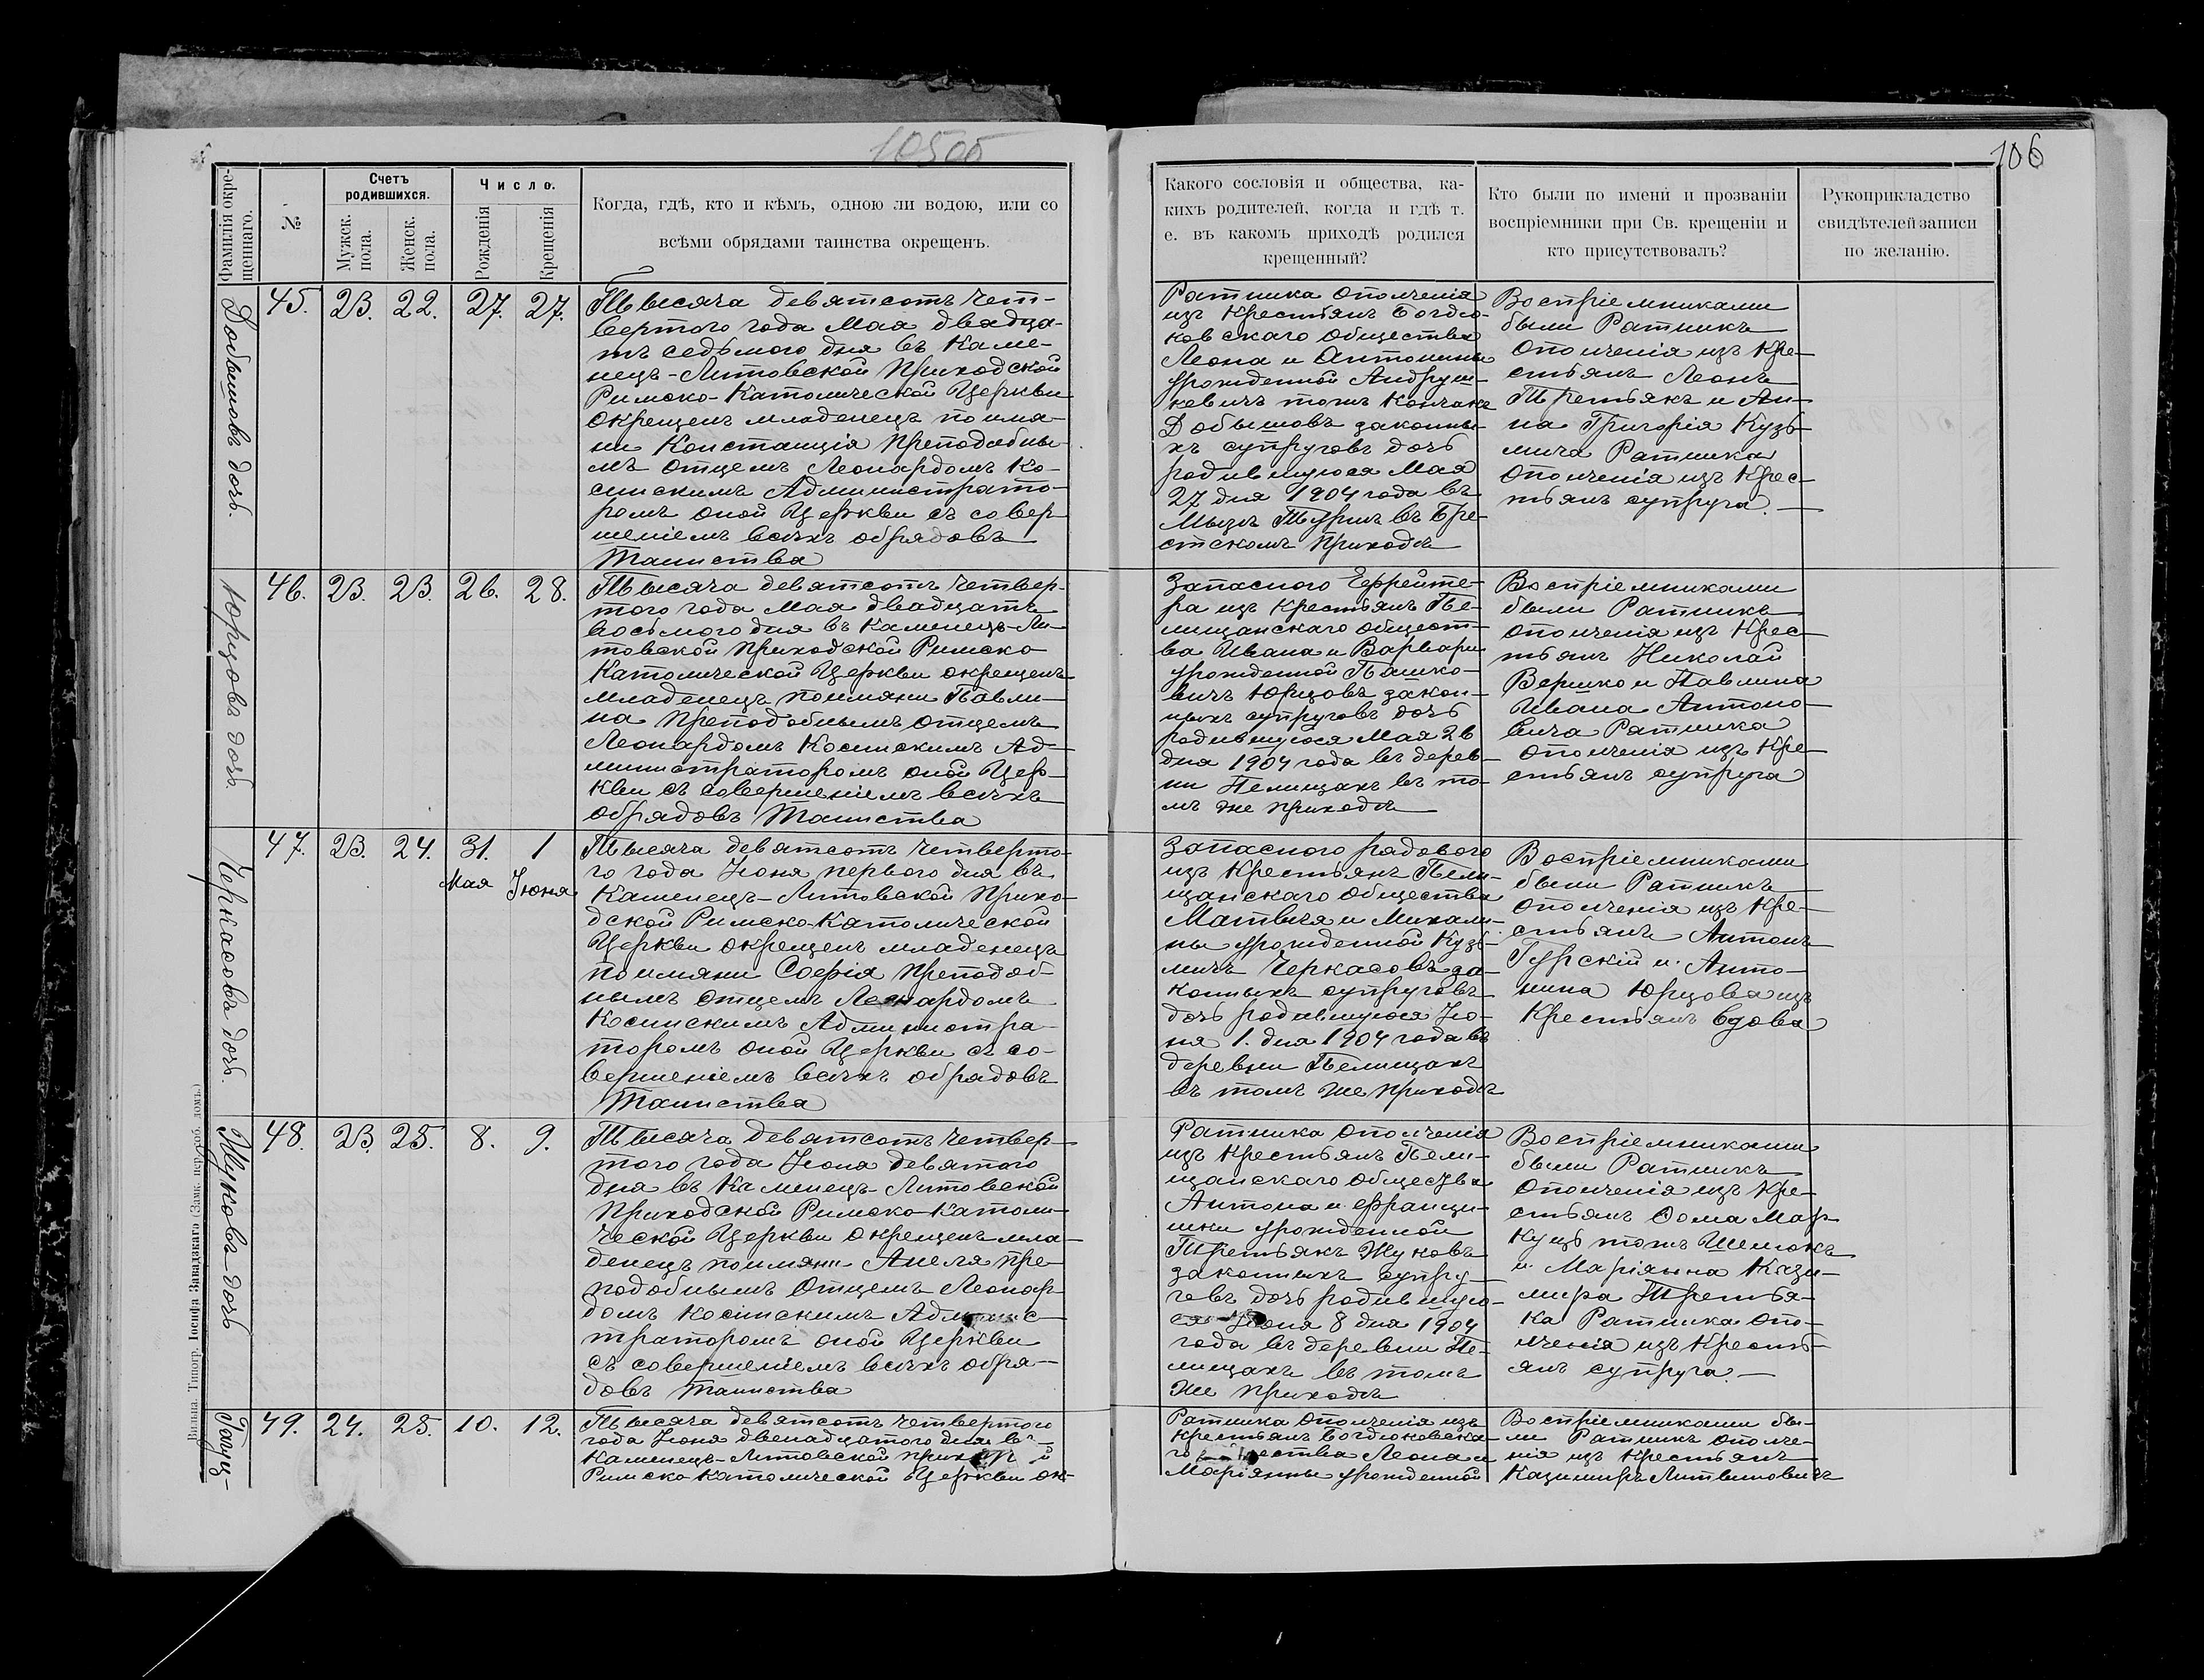 105об
106
Фамилія окрещеннаго.
№
Счетъ родившихся.
Мужск. пола.
Женск. пола.
Число.
Рожденія
Крещенія
Когда, гдѣ, кто и кѣмъ, одною ли водою, или со
всѣми обрядами таинства окрещенъ.
Какого сословія и общества, ка-
кихъ родителей, когда и гдѣ т.
е. въ какомъ приходѣ родился
крещенный?
Кто были по имени и прозваніи
воспріемники при Св. крещеніи и
кто присутствовалъ?
Рукоприкладство
свидѣтелей записи
по желанію.
Добышовъ дочь.
45. 23. 22. 27. 27.
Тысяча девятсотъ чет-
вертого года Мая двадца-
ть седьмого дня въ Каме-
нецъ-Литовской Приходской
Римско-Католической Церкви
окрещенъ младенецъ поимя-
ни Констанція Преподобны-
мъ Отцемъ Леонардомъ Ко-
синскимъ Администрато-
ромъ оной Церкви съ совер-
шеніемъ всѣхъ обрядовъ
Таинства
Ратника ополченія
изъ Крестьянъ Богдю-
ковскаго общества
Леона и Антонины
урожденной Андруш-
кевичъ тожъ Кончакъ
Добышовъ законны-
хъ супруговъ дочь
родившуюся Мая
27 дня 1904 года въ
Мызѣ Турнѣ въ Бре-
стскомъ приходѣ
Воспріемниками
были Ратникъ
ополченія изъ Кре-
стьянъ Леонъ
Третьякъ и Ан-
на Григорія Кузь-
мича Ратника
ополченія изъ Крес-
тьянъ супруга.
Юрцовъ дочь.
46. 23. 23. 26. 28.
Тысяча девятсотъ четвер-
того года Мая двадцать
восьмого дня въ Каменецъ-Ли-
товской Приходской Римско
Католической Церкви окрещенъ
младенецъ поимяни Павли-
на Преподобнымъ Отцемъ
Леонардомъ Косинскимъ Ад-
министраторомъ оной Цер-
кви съ совершеніемъ всѣхъ
обрядовъ Таинства
Запасного Ефрейте-
ра изъ Крестьянъ Пе-
лищанскаго общест-
ва Ивана и Варвары
урожденной Пашко-
вичъ Юрцовъ закон-
ныхъ супруговъ дочь
родившуюся Мая 26
дня 1904 года въ дерев-
ни Пелищахъ въ то-
мъ же приходѣ
Воспріемниками
были Ратникъ
ополченія изъ Крес-
тьянъ Николай
Вершко и Павлина
Ивана Антоно-
вича Ратника
ополченія изъ Кре-
стьянъ супруга
Черкасовъ дочь.
47. 23. 24. 31. 1
Мая Іюня
Тысяча девятсотъ четверто-
го года Іюня перваго дня въ
Каменецъ-Литовской Прихо-
дской Римско-Католической
Церкви окрещенъ младенецъ
поимяни Софія Преподоб-
нымъ Отцемъ Леонардомъ
Косинскимъ Администра-
торомъ оной Церкви съ со-
вершеніемъ всѣхъ обрядовъ
Таинства
Запасного рядового
изъ Крестьянъ Пели-
щанскаго общества
Матвѣя и Михали-
ны урожденной Кузь-
мичъ Черкасовъ за-
конныхъ супруговъ
дочь родившуюся Ію-
ня 1. дня 1904 года въ
деревни Пелищахъ
въ томъ же приходѣ
Воспріемниками
были Ратникъ
ополченія изъ Кре-
стьянъ Антонъ
Гурскій и Анто-
нина Юрцова изъ
Крестьянъ вдова
Жуковъ дочь
48. 23. 25. 8. 9.
Тысяча девятсотъ четвер-
того года Іюня девятого
дня въ Каменецъ-Литовской
Приходской Римско-Католи-
ческой Церкви окрещенъ мла-
денецъ поимяни Анеля Пре-
подобнымъ Отцемъ Леонар-
домъ Косинскимъ Админис-
траторомъ оной Церкви
съ совершеніемъ всѣхъ обря-
довъ Таинства
Ратника ополченія
изъ Крестьянъ Пели-
щанскаго общества
Антона и Францы-
шки урожденной
Третьякъ Жуковъ
законныхъ супру-
говъ дочь родившую-
ся Іюня 8 дня 1904
года въ деревни Пе-
лищахъ въ томъ
же приходѣ
Воспріемниками
были Ратникъ
ополченія изъ Кре-
стьянъ Ѳома Мар-
куць тожъ Шемокъ
и Маріянна Кази-
мира Третья-
ка Ратника опо-
лченія изъ Кресть-
янъ супруга.
49. 24. 25. 10. 12.
Тысяча девятсотъ четвертого
года Іюня двенадцатого дня въ
Каменецъ-Литовской
Римско Католической Церкви ок-
Ратника ополченія изъ
Крестьянъ Богдюковска-
го общества Леона и
Маріянны урожденной
Воспріемниками бы-
ли Ратникъ ополче-
нія изъ Крестьянъ
Казимиръ Литвиновичъ
Вильна. Типогр. Іосифа Завадзкаго